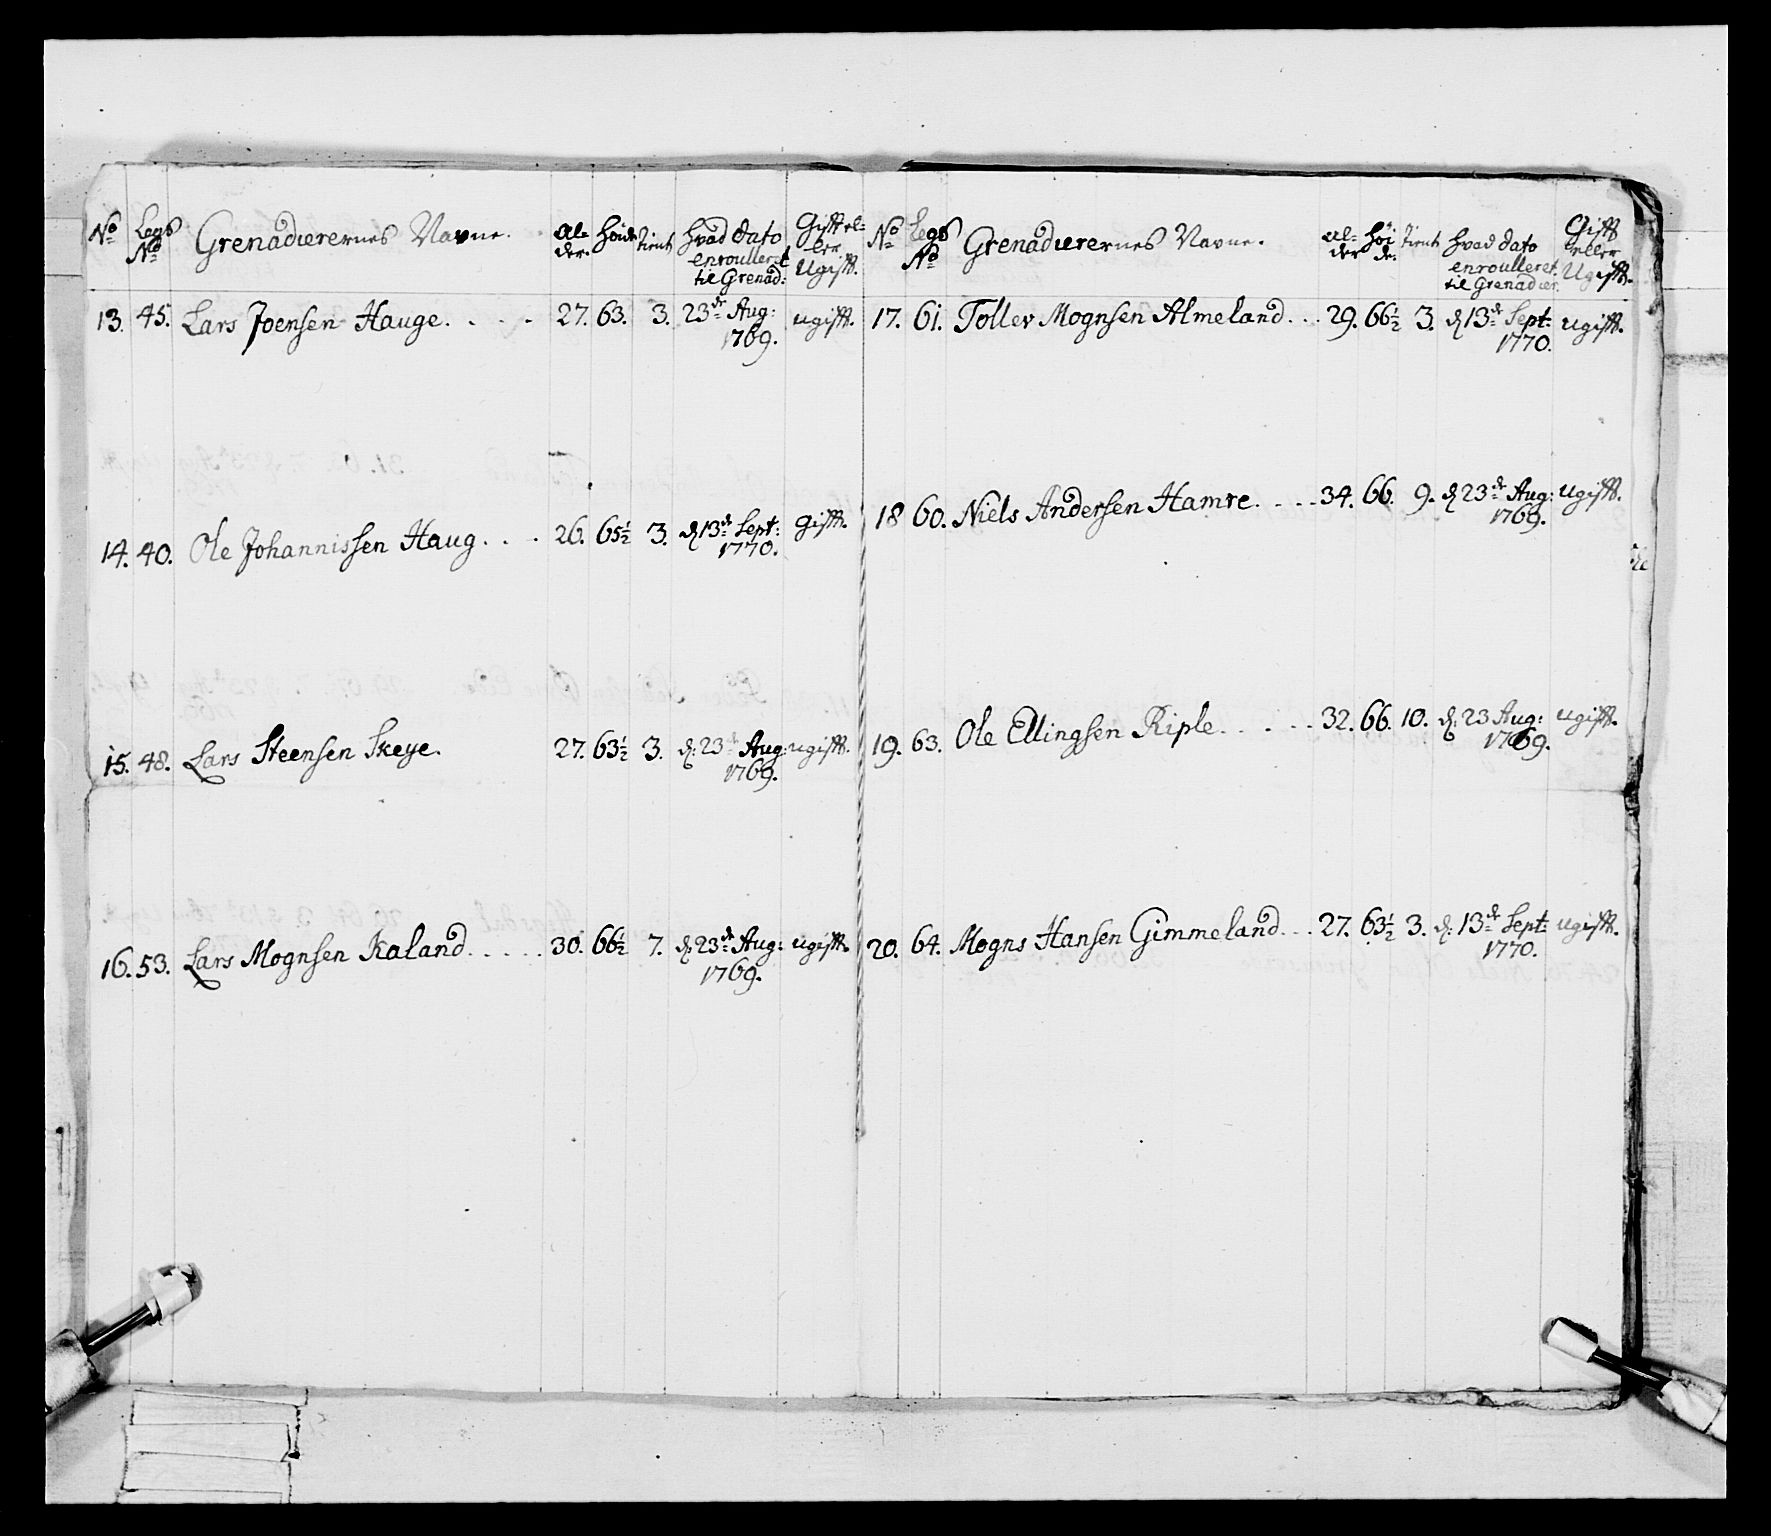 No Legs No Grenadierernes Navne. Alder. Høide tient hvad dato enroulleret til Grenad: Gift eller Ugifft.
13. 45. Lars Joensen Hauge. . . . 27. 63. 3. 23de Aug: 1769. ugifft.
14. 40. Ole Johannissen Haug. . . 26. 65½ 3. d. 13de Sept: 1770. gifft.
15. 48. Lars Steensen Skeye. 27. 63½ 3. d. 23de Aug: 1769. ugifft.
16. 53. Lars Mognsen Kaland. . . . . 30. 66½ 7. d. 23de Aug: 1769. ugifft.
No Legs No Grenadierernes Navne. Alder Høide. tient hvad dato enroulleret til Grenadier. Gifft eller Ugifft.
17. 61. Tollev Mognsen Almeland. . . 29. 66½ 3. d. 13de Sept: 1770. ugifft.
18 60. Niels Andersen Hamre. . . . 34. 66. 9. d. 23de Aug: 1769. Ugifft.
19. 63. Ole Ellingsen Riple. . . . . 32. 66. 10. d. 23 Aug: 1769. ugifft.
20. 64. Mogns Hansen Gimmeland. . . 27. 63½ 3. d. 13de Sept: 1770. ugifft.